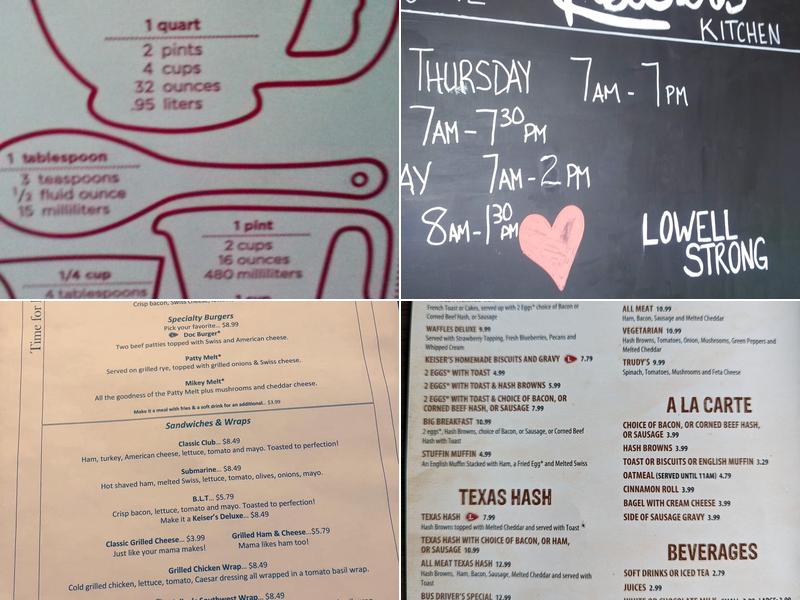 1 quart
2 pints
4 cups
32 ounces
.95 liters
1 tablespoon
3 teaspoons
1/2 fluid ounce
15 milliliters
1 pint
2 cups
16 ounces
480 milliliters
1/4 cup
4 tablespoons
KITCHEN
THURSDAY 7AM - 7PM
7AM - 730 PM
AY 7AM - 2PM
8AM - 130 PM
LOWELL
STRONG
Time for
Crisp bacon, Swiss cheese,
Specialty Burgers
Pick your favorite... $8.99
Doc Burger*
Two beef patties topped with Swiss and American cheese.
Patty Melt*
Served on grilled rye, topped with grilled onions & Swiss cheese.
Mikey Melt*
All the goodness of the Patty Melt plus mushrooms and cheddar cheese.
Make it a meal with fries & a soft drink for an additional.. $3.99
Sandwiches & Wraps
Classic Club... $8.49
Ham, turkey, American cheese, lettuce, tomato and mayo. Toasted to perfection!
Submarine... $8.49
Hot shaved ham, melted Swiss, lettuce, tomato, olives, onions, mayo.
B.L.T... $5.79
Crisp bacon, lettuce, tomato and mayo. Toasted to perfection!
Make it a Keiser's Deluxe... $8.49
Classic Grilled Cheese... $3.99
Just like your mama makes!
Grilled Ham & Cheese...$5.79
Mama likes ham too!
Grilled Chicken Wrap... $8.49
Cold grilled chicken, lettuce, tomato, Caesar dressing all wrapped in a tomato basil wrap.
Southwest Wrap... $8.49
French Toast or Cakes, served up with 2 Eggs* choice of Bacon or
Corned Beef Hash, or Sausage
WAFFLES DELUXE 9.99
Served with Strawberry Topping, Fresh Blueberries, Pecans and
Whipped Cream
KEISER'S HOMEMADE BISCUITS AND GRAVY L 7.79
2 EGGS* WITH TOAST 4.99
2 EGGS* WITH TOAST & HASH BROWNS 5.99
2 EGGS* WITH TOAST & CHOICE OF BACON, OR
CORNED BEEF HASH, OR SAUSAGE 7.99
BIG BREAKFAST 10.99
2 eggs*, Hash Browns, choice of Bacon, or Sausage, or Corned Beef
Hash with Toast
STUFFIN MUFFIN 4.99
An English Muffin Stacked with Ham, a Fried Egg* and Melted Swiss
TEXAS HASH
TEXAS HASH L 7.99
Hash Browns topped with Melted Cheddar and served with Toast
TEXAS HASH WITH CHOICE OF BACON, OR HAM,
OR SAUSAGE 10.99
ALL MEAT TEXAS HASH 12.99
Hash Browns, Ham, Bacon, Sausage, Melted Cheddar and served with
Toast
BUS DRIVER'S SPECIAL 12.99
ALL MEAT 10.99
Ham, Bacon, Sausage and Melted Cheddar
VEGETARIAN 10.99
Hash Browns, Tomatoes, Onion, Mushrooms, Green Peppers and
Melted Cheddar
TRUDY'S 9.99
Spinach, Tomatoes, Mushrooms and Feta Cheese
A LA CARTE
CHOICE OF BACON, OR CORNED BEEF HASH,
OR SAUSAGE 3.99
HASH BROWNS 3.99
TOAST OR BISCUITS OR ENGLISH MUFFIN 3.29
OATMEAL (SERVED UNTIL 11AM) 4.79
CINNAMON ROLL 3.99
BAGEL WITH CREAM CHEESE 3.99
SIDE OF SAUSAGE GRAVY 3.99
BEVERAGES
SOFT DRINKS OR ICED TEA 2.79
JUICES 2.99